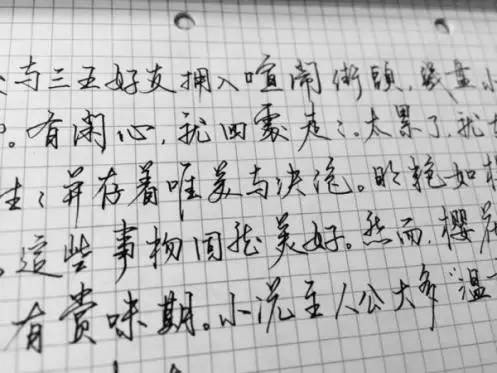 与三五好友拥入喧闹街頭，几盘小
。有闲心，就四處走走。太累了，就
生；并存着唯美与决绝。明艳如
，這些事物固然美好。然而，樱花
有赏味期。小说主人公大多“温